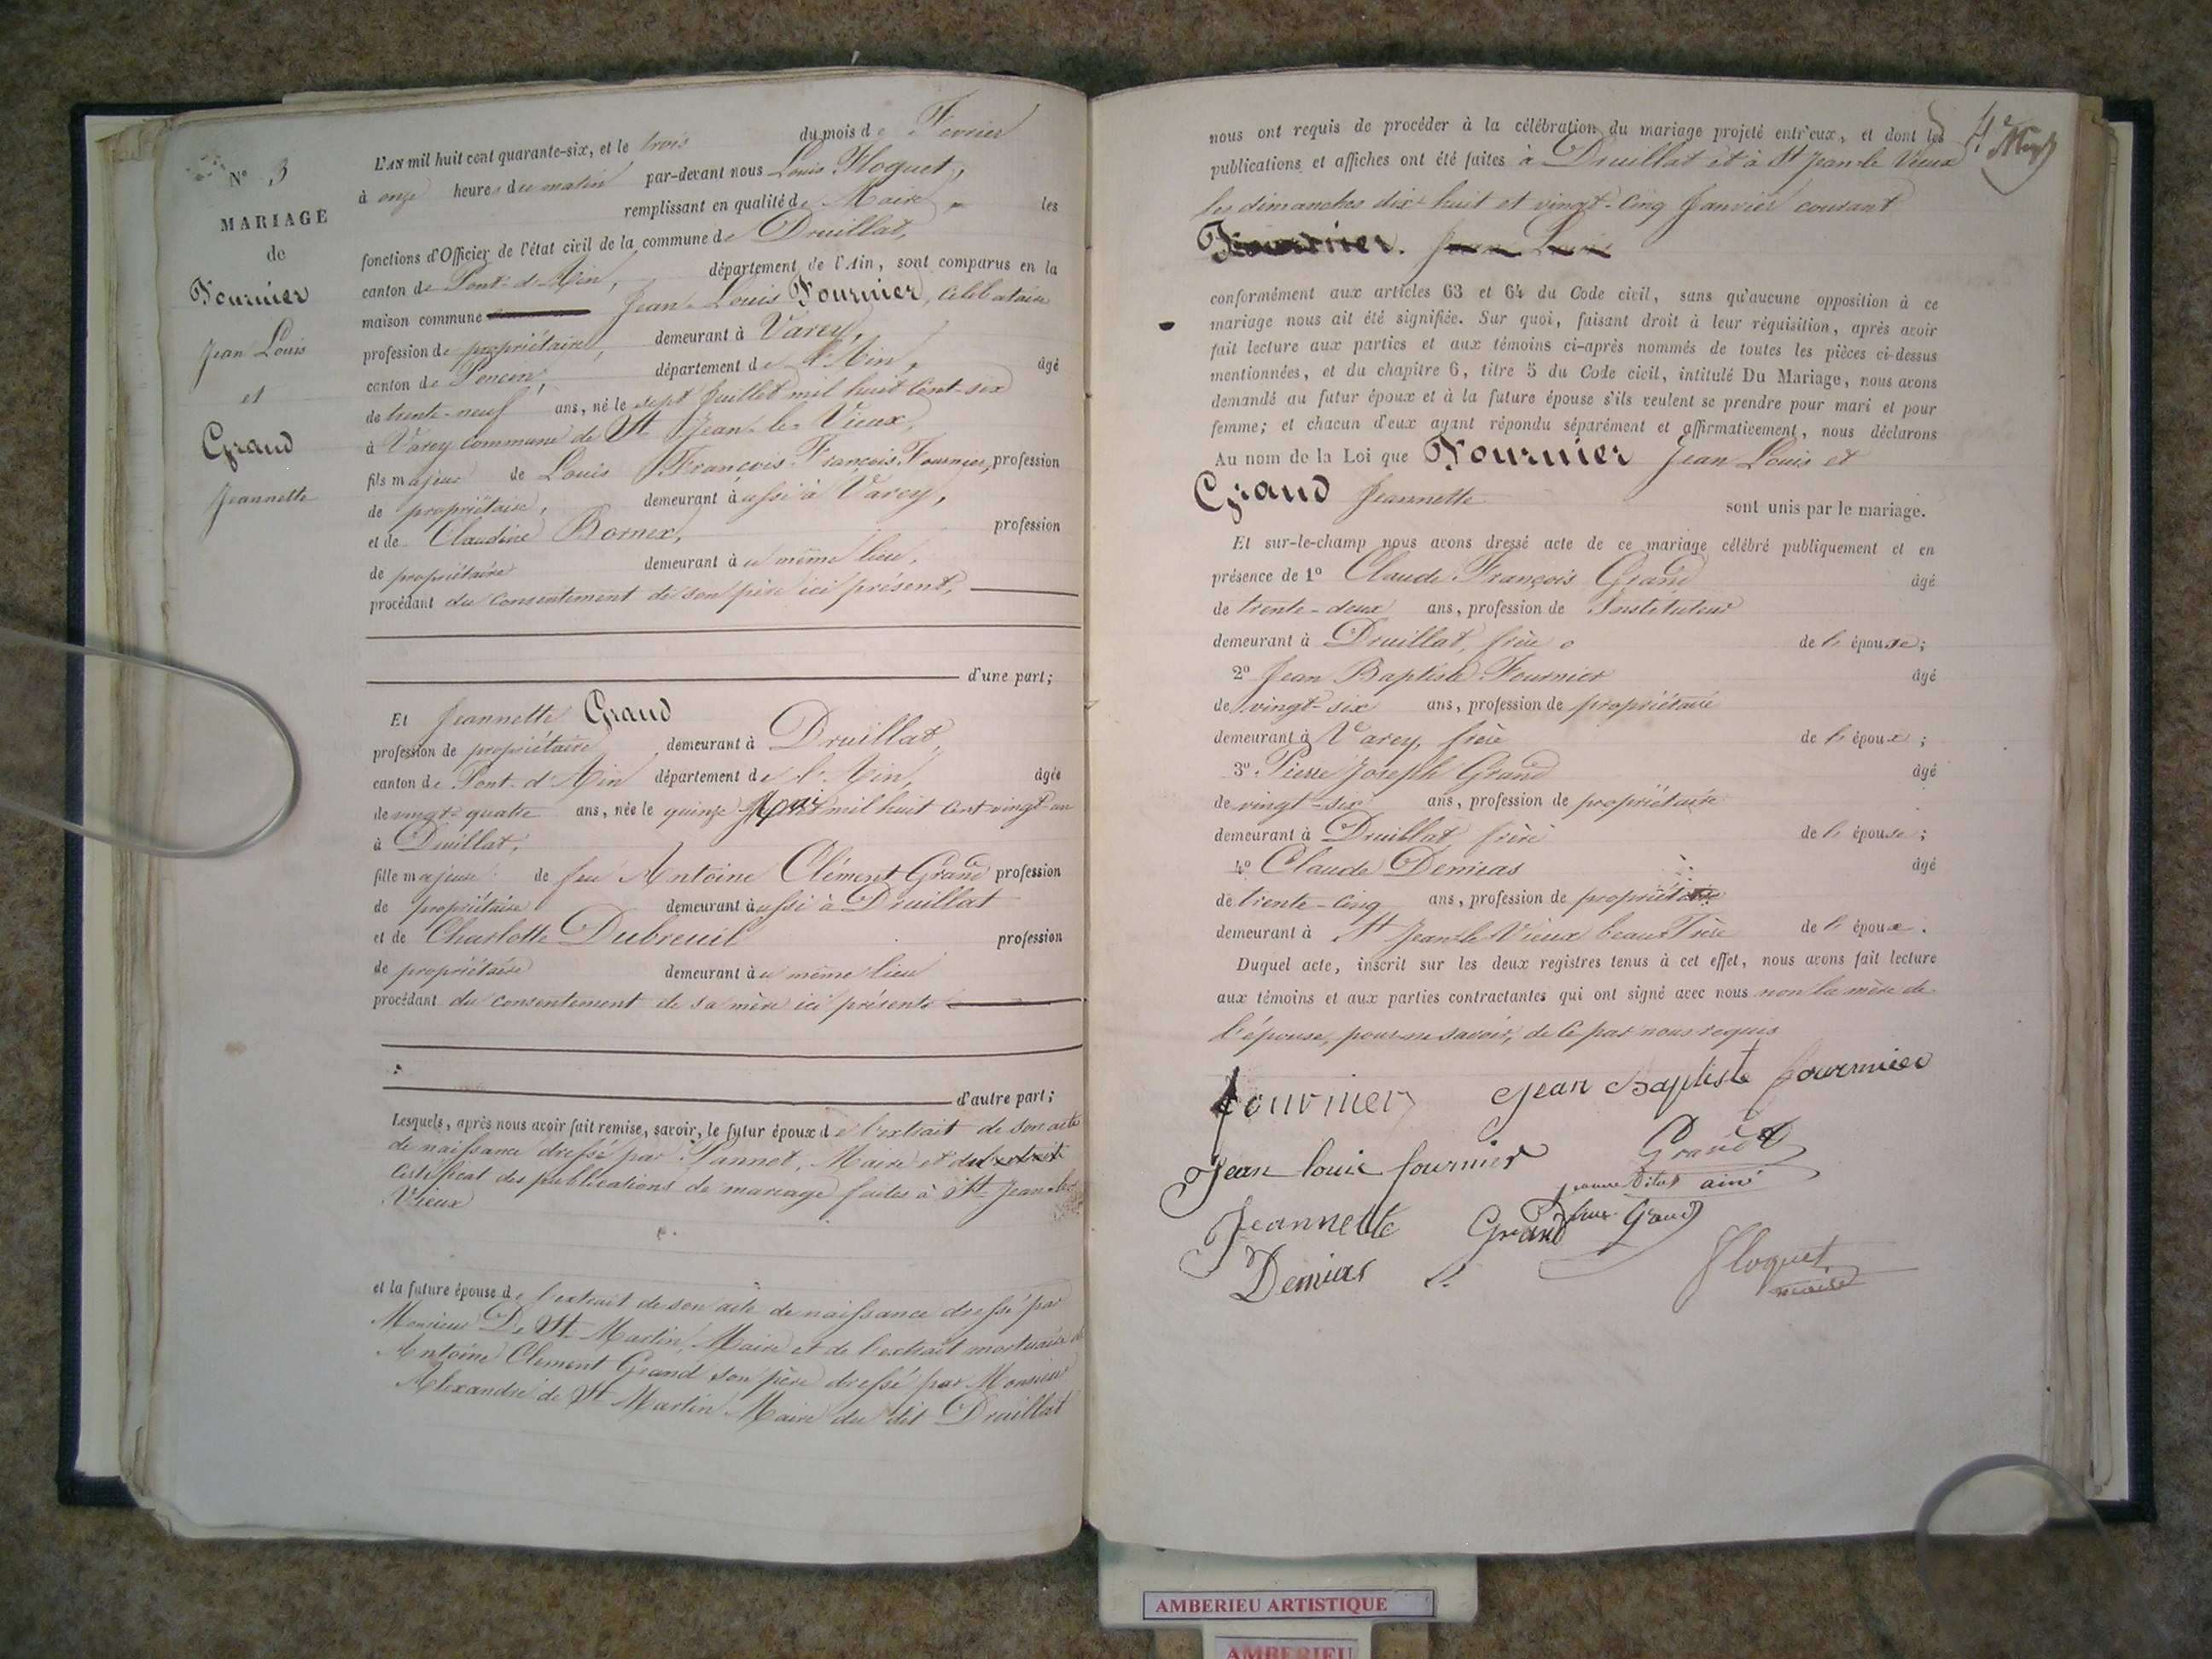 N° 3
MARIAGE
de
Fournier
Jean Louis
et
Grand
Jeannette
L'AN mil huit cent quarante-six, et le trois du mois de Fevrier
à onze heures du matin par-devant nous Louis Floquet,
remplissant en qualité de Maire les
fonctions d'Officier de l'état civil de la commune de Druillat,
canton de Pont-d'Ain, département de l'Ain, sont comparus en la
maison commune Jean-Louis Fournier, célibataire
profession de propriétaire, demeurant à Varey,
canton de Poncin, département de l'Ain, âgé
de trente-neuf ans, né le sept Juillet mil huit cent-six
à Varey commune de St Jean-le-Vieux,
fils majeur de Louis François François Fournier, profession
de propriétaire, demeurant aussi à Varey,
et de Claudine Bornex, profession
de propriétaire demeurant au même lieu,
procédant du consentement de son père ici présent,
d'une part;
Et Jeannette Grand
profession de propriétaire demeurant à Druillat,
canton de Pont-d'Ain département de l'Ain, âgée
de vingt-quatre ans, née le quinze mil huit cent vingt-un
à Druillat,
fille majeure de feu Antoine Clément Grand profession
de propriétaire demeurant aussi à Druillat
et de Charlotte Dubreuil profession
de propriétaire demeurant au même lieu
procédant du consentement de sa mère ici présente
d'autre part;
Lesquels, après nous avoir fait remise, savoir, le futur époux de l'extrait de son acte
de naissance dressé par Pannet, Maire et du extrait
certificat des publications de mariage faites à St Jean-le-
Vieux
et la future épouse de l'extrait de son acte de naissance dressé par
Monsieur De St Martin, Maire et de l'extrait mortuaire de
Antoine Clement Grand son père dressé par Monsieur
Alexandre de St Martin Maire du dit Druillat
nous ont requis de procéder à la célébration du mariage projeté entr'eux, et dont les
publications et affiches ont été faites à Druillat et à St Jean-le Vieux
les dimanches dix-huit et vingt-cinq Janvier courant
Fournier. Jean Louis
conformément aux articles 63 et 64 du Code civil, sans qu'aucune opposition à ce
mariage nous ait été signifiée. Sur quoi, faisant droit à leur réquisition, après avoir
fait lecture aux parties et aux témoins ci-après nommés de toutes les pièces ci-dessus
mentionnées, et du chapitre 6, titre 5 du Code civil, intitulé Du Mariage, nous avons
demandé au futur époux et à la future épouse s'ils veulent se prendre pour mari et pour
femme; et chacun d'eux ayant répondu séparément et affirmativement, nous déclarons
Au nom de la Loi que Fournier Jean Louis et
Grand Jeannette sont unis par le mariage.
Et sur-le-champ nous avons dressé acte de ce mariage célébré publiquement et en
présence de 1° Claude François Grand âgé
de trente-deux ans, profession de Instituteur
demeurant à Druillat, frère de l'épouse;
2° Jean Baptiste Fournier âgé
de vingt-six ans, profession de propriétaire
demeurant à Varey, frère de l'époux;
3° Pierre Joseph Grand âgé
de vingt-six ans, profession de propriétaire
demeurant à Druillat frère de l'épouse;
4° Claude Demias âgé
de trente-cinq ans, profession de propriétaire
demeurant à St Jean-le Vieux beau-Frère de l'époux.
Duquel acte, inscrit sur les deux registres tenus à cet effet, nous avons fait lecture
aux témoins et aux parties contractantes qui ont signé avec nous non la mère de
l'épouse, pour ne savoir, de ce par nous requis
fournier Jean Baptiste fournier
Jean louis fournier Grand
ainé
Jeannette Grand Grand
Demias Floquet
maire
AMBERIEU ARTISTIQUE
AMBERIEU